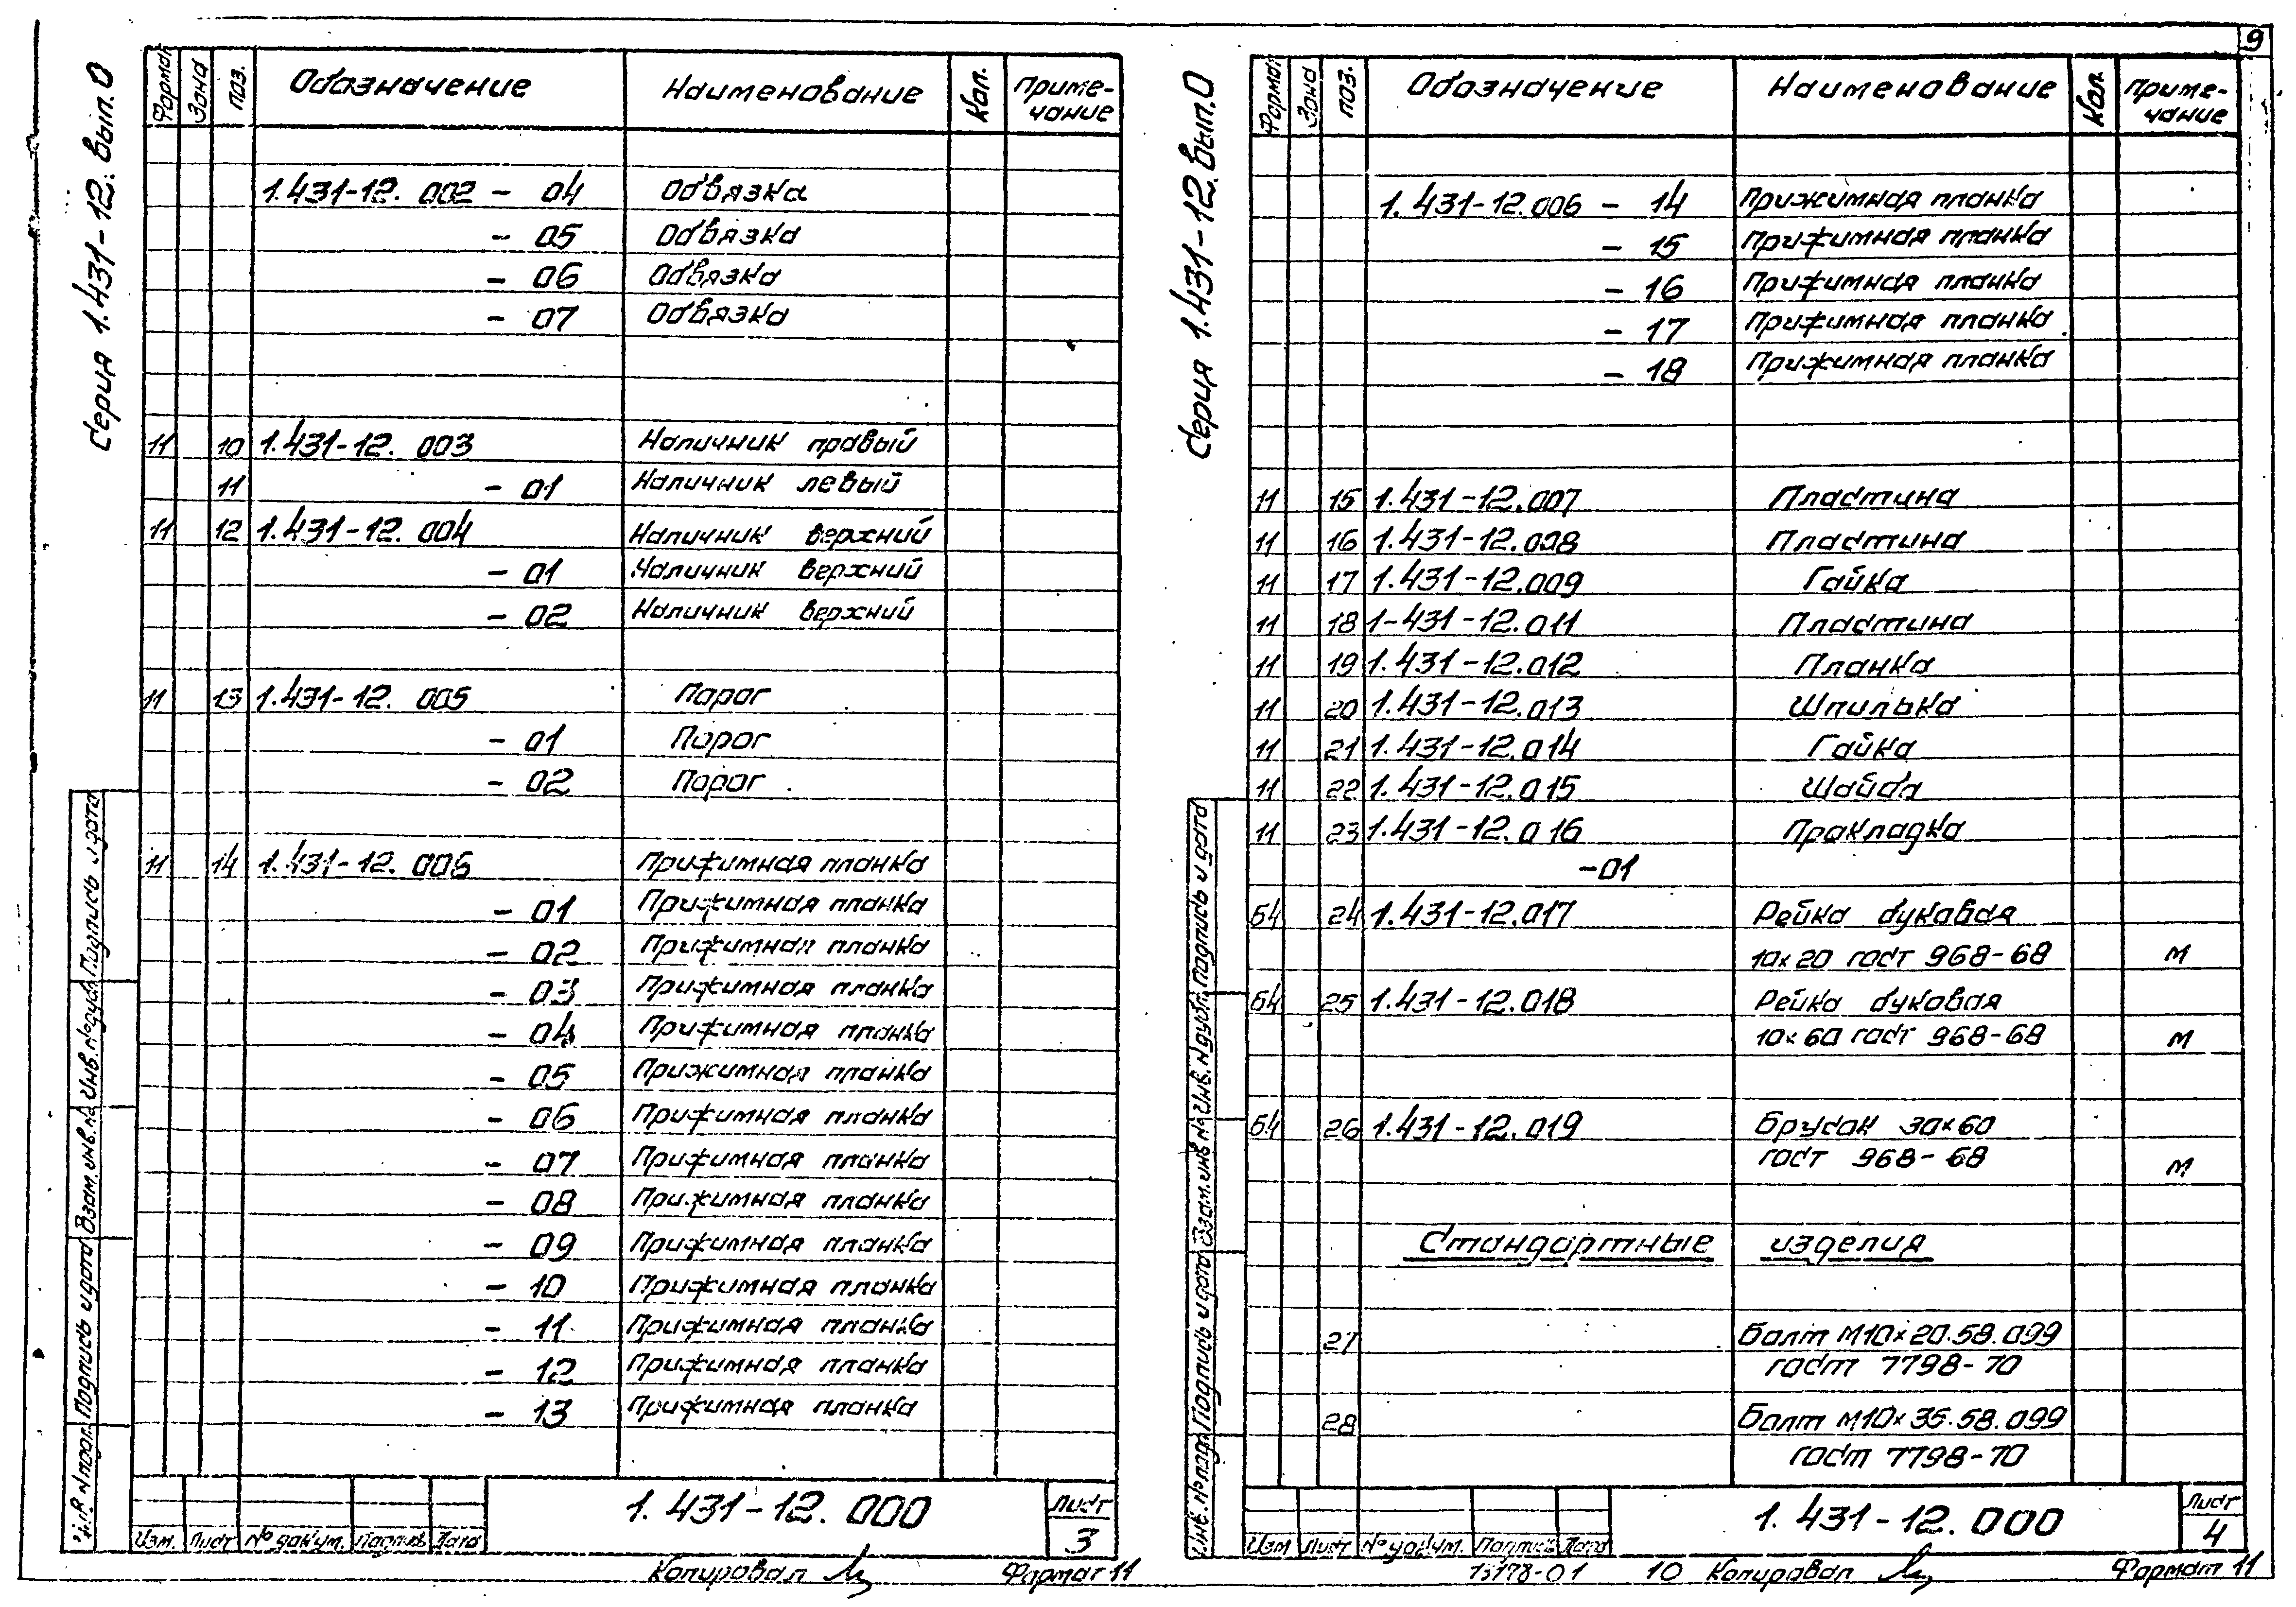 9
Серия 1.431-12. вып.0
Формат Зона Поз. Обозначение Наименование Кол. Приме-
чание
1.431-12. 002 - 04 Обвязка
- 05 Обвязка
- 06 Обвязка
- 07 Обвязка
11 10 1.431-12. 003 Наличник правый
11 - 01 Наличник левый
11 12 1.431-12. 004 Наличник верхний
- 01 Наличник верхний
- 02 Наличник верхний
11 13 1.431-12. 005 Порог
- 01 Порог
- 02 Порог
11 14 1.431-12. 006 Прижимная планка
- 01 Прижимная планка
- 02 Прижимная планка
- 03 Прижимная планка
- 04 Прижимная планка
- 05 Прижимная планка
- 06 Прижимная планка
- 07 Прижимная планка
- 08 Прижимная планка
- 09 Прижимная планка
- 10 Прижимная планка
- 11 Прижимная планка
- 12 Прижимная планка
- 13 Прижимная планка
Инв. № подл. Подпись и дата Взам. инв. № Инв. № дубл. Подпись и дата
1.431-12. 000
Лист
3
Изм. Лист № докум. Подпись Дата
Копировал Формат 11
Серия 1.431-12. вып.0
Формат Зона Поз. Обозначение Наименование Кол. Приме-
чание
1.431-12.006 - 14 Прижимная планка
- 15 Прижимная планка
- 16 Прижимная планка
- 17 Прижимная планка
- 18 Прижимная планка
11 15 1.431-12.007 Пластина
11 16 1.431-12.008 Пластина
11 17 1.431-12.009 Гайка
11 18 1-431-12.011 Пластина
11 19 1.431-12.012 Планка
11 20 1.431-12.013 Шпилька
11 21 1.431-12.014 Гайка
11 22 1.431-12.015 Шайба
11 23 1.431-12.016 Прокладка
-01
б4 24 1.431-12.017 Рейка буковая
10×20 гост 968-68 м
б4 25 1.431-12.018 Рейка буковая
10×60 гост 968-68 м
б4 26 1.431-12.019 Брусок 30×60
гост 968-68 м
Стандартные изделия
27 Болт М10×20.58.099
гост 7798-70
28 Болт М10×35.58.099
гост 7798-70
Инв. № подл. Подпись и дата Взам. инв. № Инв. № дубл. Подпись и дата
1. 431-12. 000
Лист
4
Изм Лист № докум. Подпись Дата
13178-01 10 Копировал Формат 11